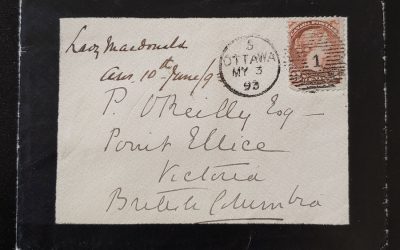 Lady Macdonald
Ans. 10th June/93
5
OTTAWA
MY 3
93
1
P. O'Reilly Esq –
Point Ellice
Victoria
British Columbia